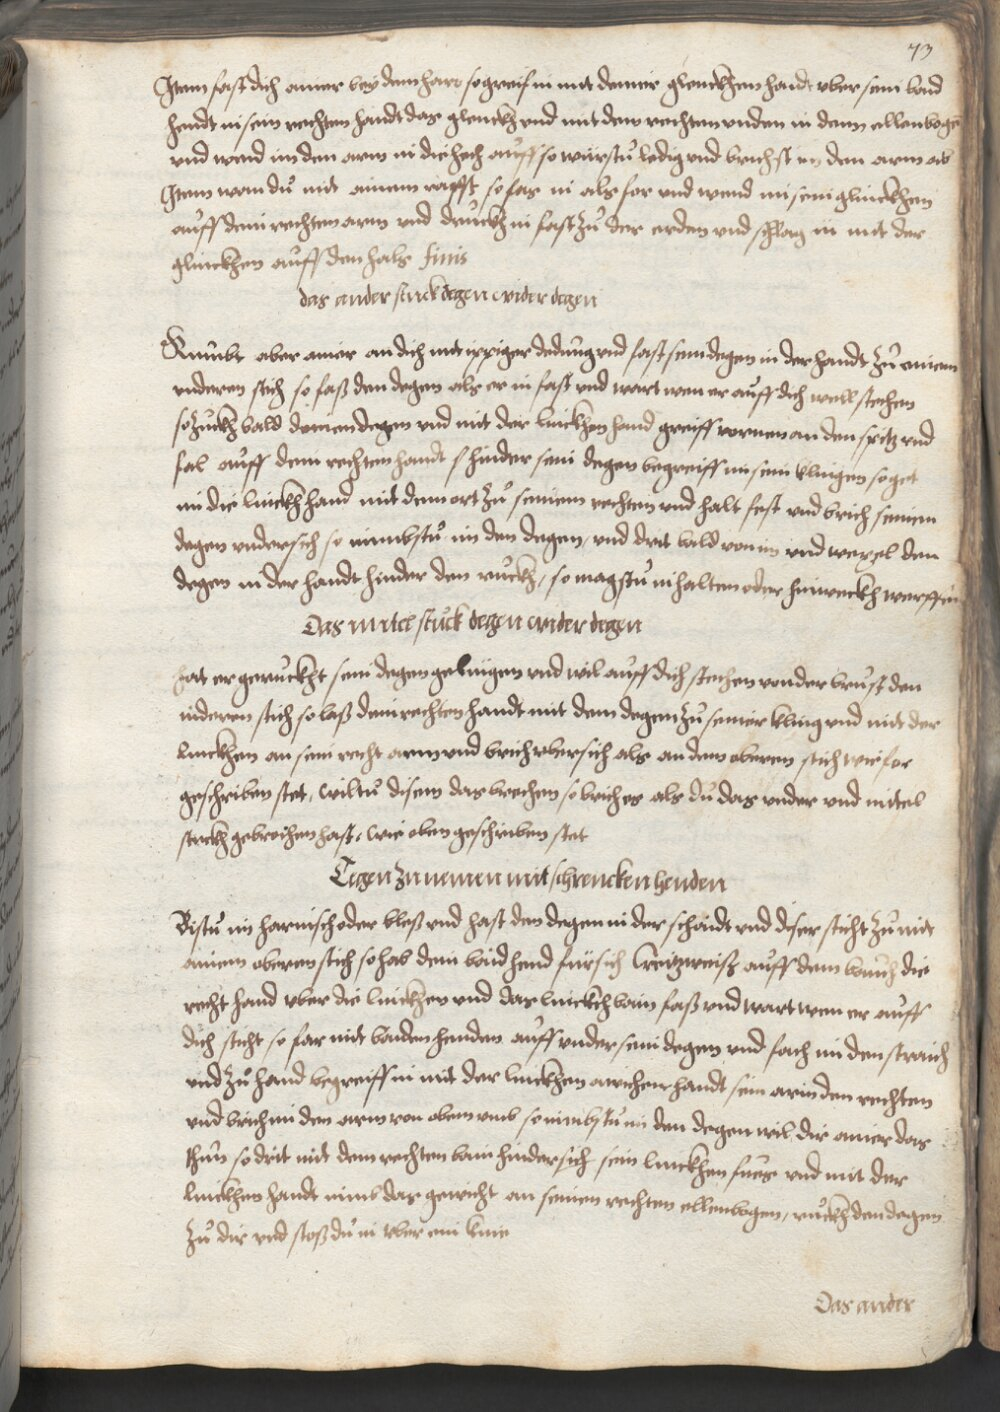 73
Item fast dich ainer bey dem har so greif in mit deiner glenckhen handt vber sein baid
hendt in sein rechten handt das glenckh vnd mit dem rechten vnden in denn ellenboge
vnd wend im den arm in die hech auff so würstu ledig vnd brichst im den arm ab
Item wan du mit ainem rafft so fas in als for vnd wend im sein glinckhen
auff dein rechten arm vnd druckh in fast zu der erden vnd schlag in mit der
glinckhen auff den hals finis
das ander stuck degen wider degen
Kumbt aber ainer an dich mit ippiger dedung vnd fast sein degen in der handt zu ainem
vnderen stich so faß den degen als er in fast vnd wart wen er auff dich well stechen
so zuckh bald deinen degen vnd mit der linckhen hand greiff vornen an den spitz vnd
fal auff dem rechten handt hinder sein degen begreiff im sein klingen so get
im die linckh hand mit dem ort zu seinem rechten vnd halt fest vnd brich seinem
degen vndersich so nimbstu im den degen, vnd drit bald von im vnd wexel den
degen in der handt hinder den ruckh, so magstu in halten oder hinweckh werffen
Das mitel stuck degen wider degen
hat er geruckht sein degen gelingen vnd wil auff dich stechen von der brust den
inderen stich so laß dein rechten handt mit dem degen zu seiner kling vnd mit der
linckhen an sein recht arm vnd brich vbersich als an dem oberen stich wie for
geschriben stet, wiltu disem das brechen so brich es als du das vnder vnd mitel
stuckh gebrochen hast, wie oben geschriben stet
Tegen zu nemen mit schrencken henden
Bistu im harnisch oder bloß vnd hast den degen in der schaidt vnd diser sticht zu mit
ainem oberen stich so hab dein baid hend fürsich Creitzweiß auff dem bauch die
recht hand vber die linckhen vnd das linckch bain faß vnd wart wen er auff
dich sticht so far mit baiden henden auff vnder sein degen vnd fach im den straich
vnd zu hand begreiff in mit der linckhen handt sein arm den rechten
vnd brich im den arm von oben vmb so nimbstu im den degen wil dir ainer das
thun so drit mit dem rechten bain hindersich sein linckhen fues vnd mit der
linckhen handt nimb das gewicht an seinen rechten ellenbogen, ruckh den degen
zu dir vnd stoß du in vber ein knie
Das ander